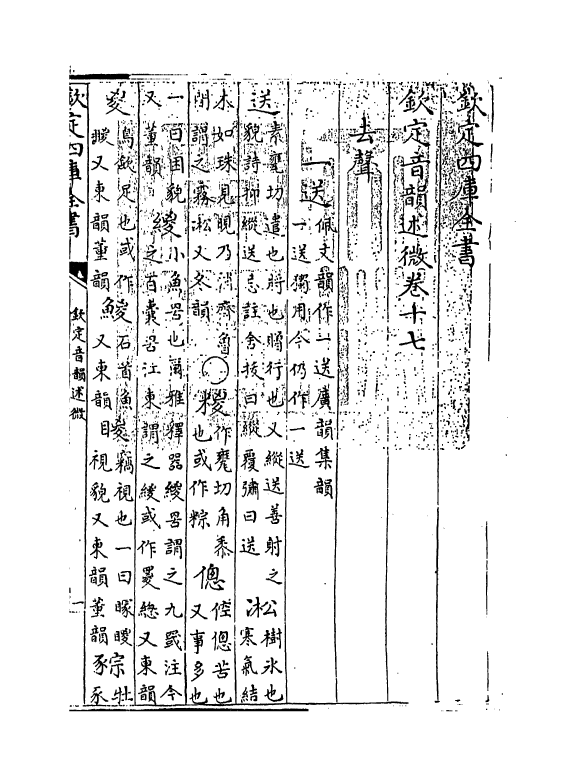 欽定四庫全書
欽定音韻述微卷十七
去聲
一送
佩文韻作一送廣韻集韻
一送獨用今仍作一送
送
素甕切遣也將也贈行也又縱送善射之
貌詩抑縱送忌註舍拔曰縱覆彇曰送
凇
樹氷也
寒氣結
木如珠見晛乃消齊魯
閒謂之霧凇又冬韻
○糉
作甕切角黍
也或作粽
傯
倥傯苦也
又事多也
一曰困貌
又董韻
緵
小魚罟也爾雅釋器緵罟謂之九罭注今
之百囊罟江東謂之緵或作緫又東韻
㚇
鳥斂足也或作
又東韻董韻
鯼
石首魚
又東韻
竊視也一曰
視貌又東韻董韻
牡
豕
欽定四庫全書
欽定音韻述微
一